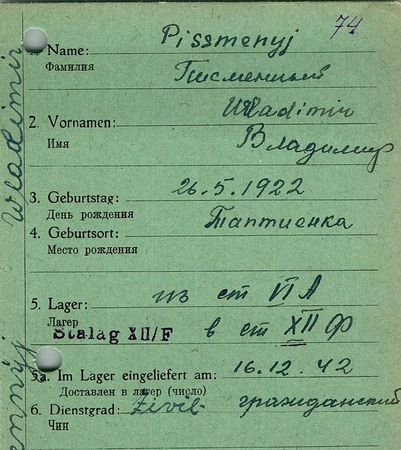 74
Pissmenyj
1. Name:
Фамилия
Письменный
Wladimir
2. Vornamen:
Имя
Владимир
3. Geburtstag:
День рождения
26.5.1922
4. Geburtsort:
Место рождения
Таптиенка
5. Lager:
Лагерь
из ст VI A
Stalag XII/F
в ст XII Ф
5a. Im Lager eingeliefert am:
Доставлен в лагерь (число)
16.12.42
6. Dienstgrad:
Чин
Zivil
гражданский
Wladimir